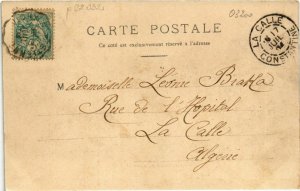 CARTE POSTALE
Ce côté est exclusivement réservé à l'adresse
LA CALLE
17
CONSTANTINE
Mademoiselle Léonie
Rue de l'Hôpital
La Calle
Algérie